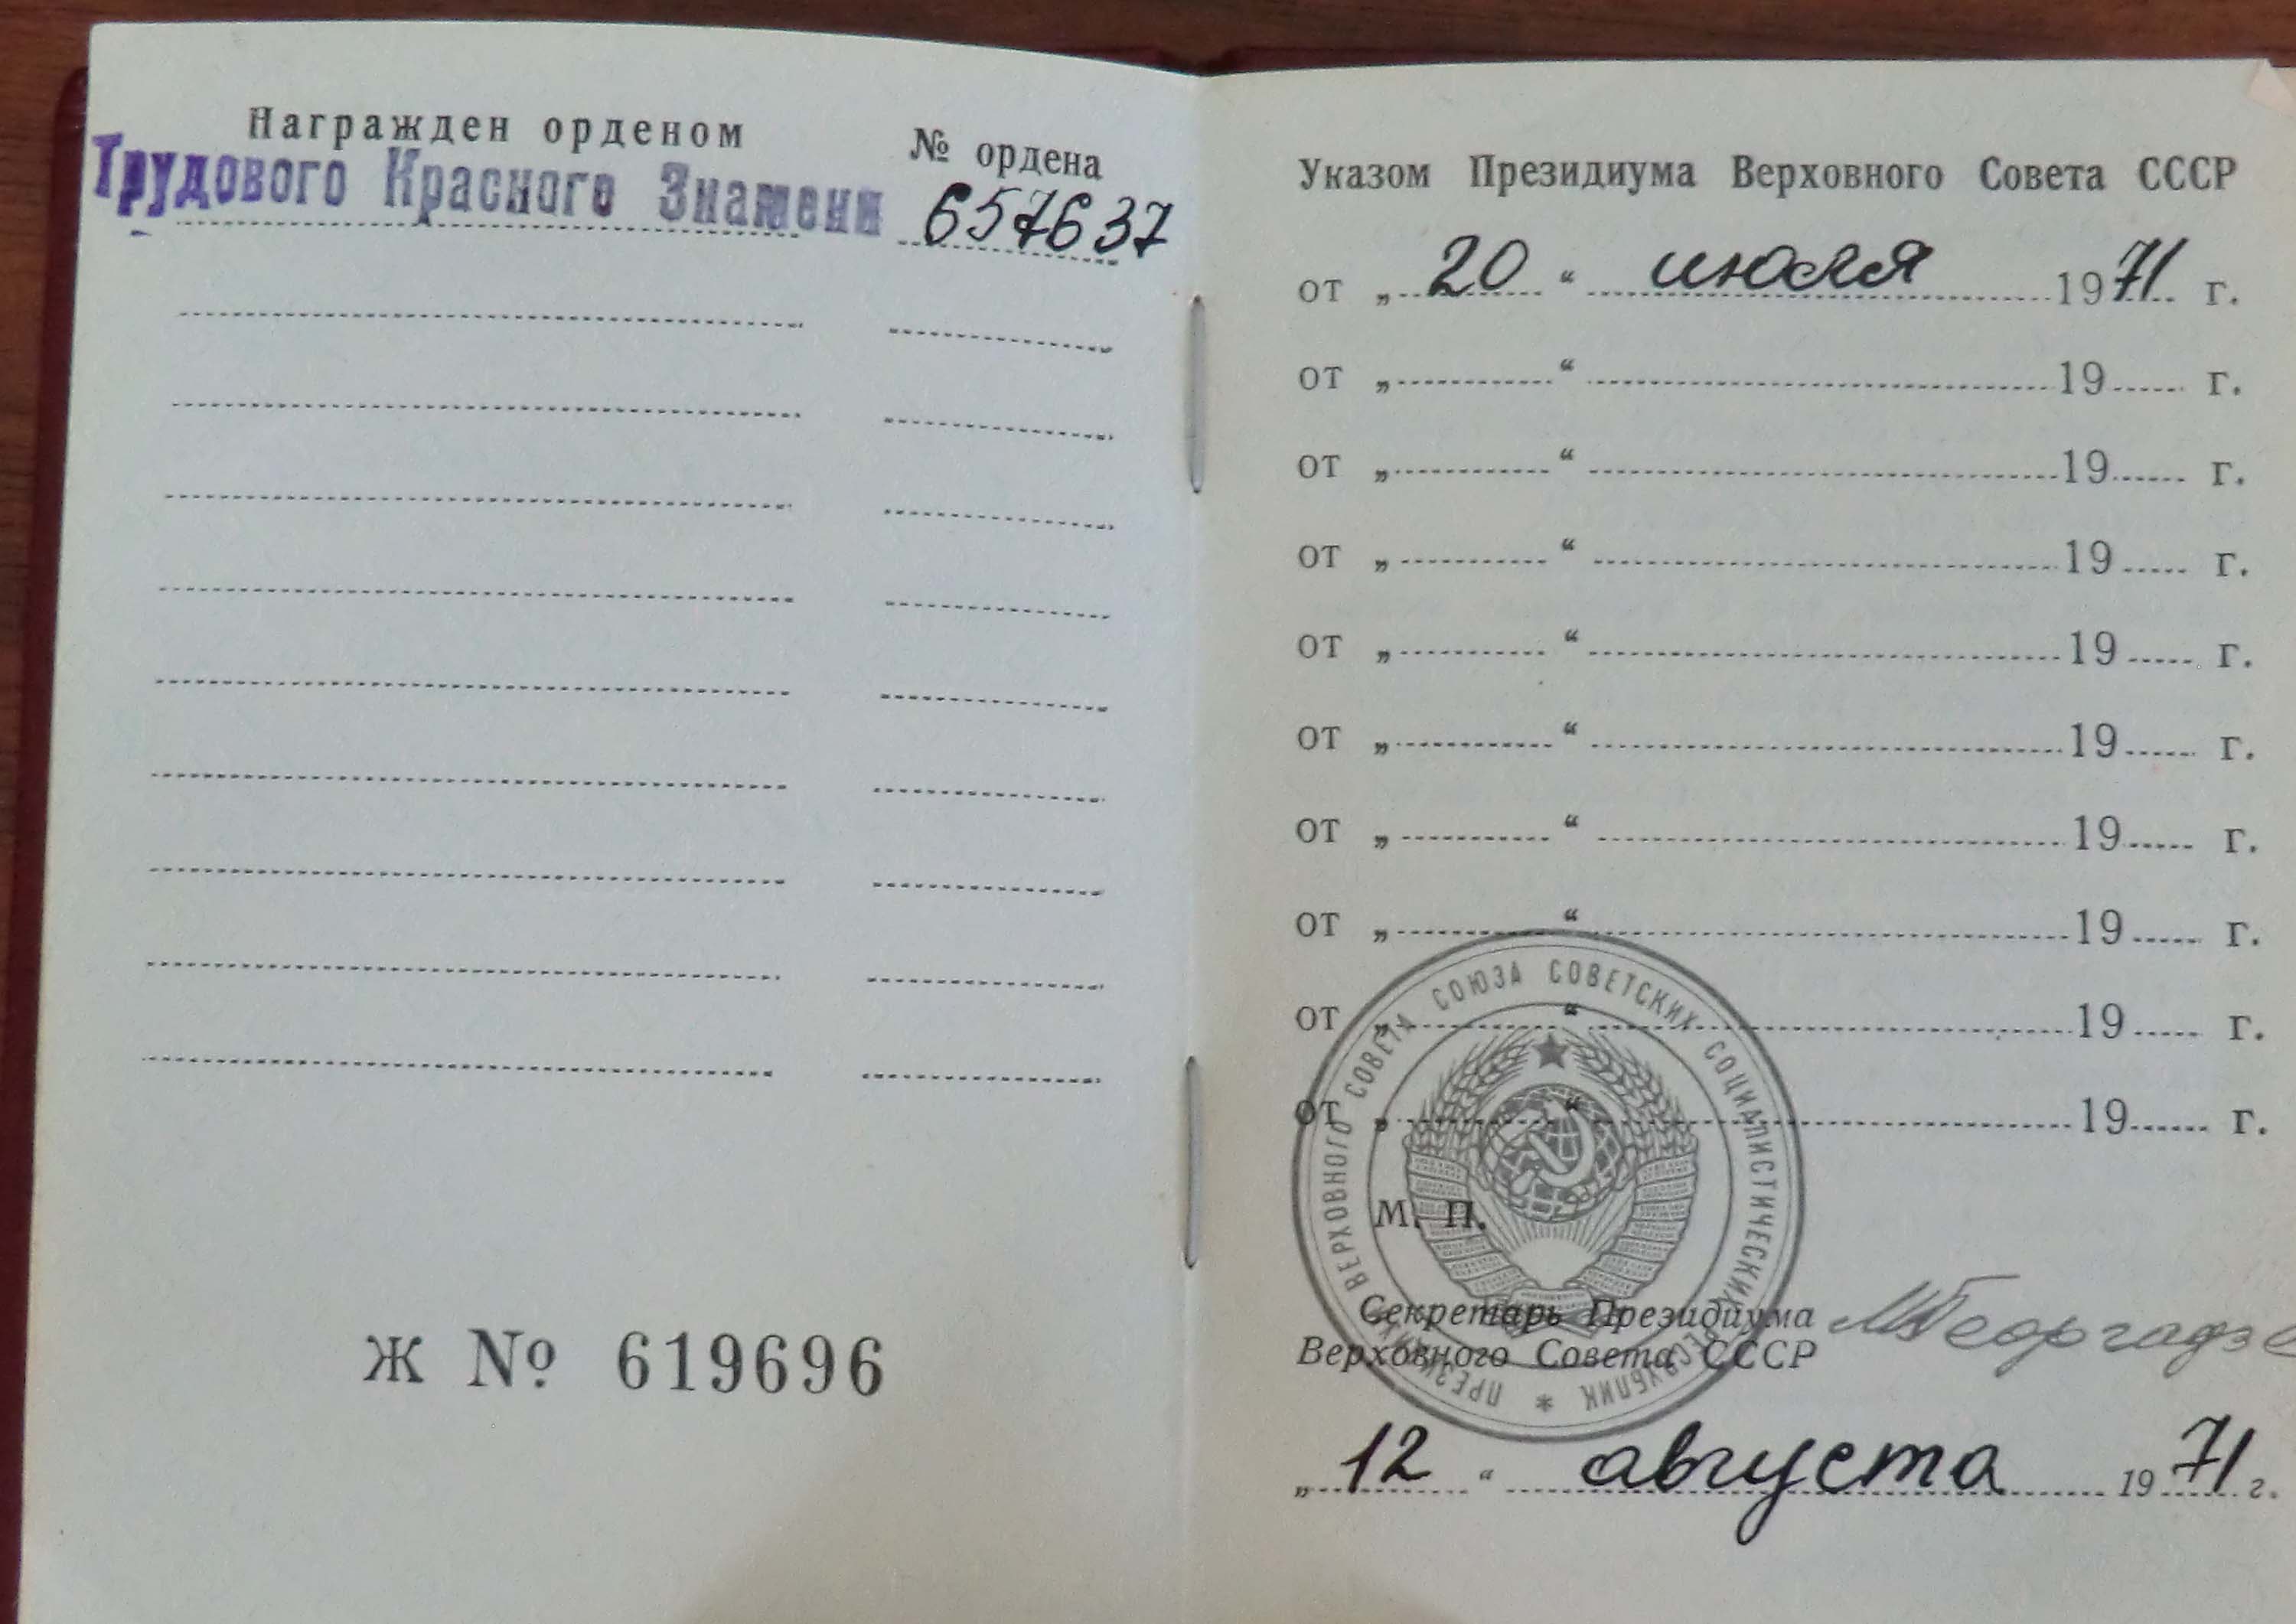 Награжден орденом
№ ордена
Трудового Красного Знамени
657637
Ж № 619696
Указом Президиума Верховного Совета СССР
от „ 20 “ июля 1971 г.
от „ “ 19 г.
от „ “ 19 г.
от „ “ 19 г.
от „ “ 19 г.
от „ “ 19 г.
от „ “ 19 г.
от „ “ 19 г.
от „ “ 19 г.
от „ “ 19 г.
от „ “ 19 г.
ПРЕЗИДИУМ ВЕРХОВНОГО СОВЕТА СОЮЗА СОВЕТСКИХ СОЦИАЛИСТИЧЕСКИХ РЕСПУБЛИК *
М. П.
Секретарь Президиума
Верховного Совета СССР
МГеоргадзе
„ 12 “ августа 1971 г.